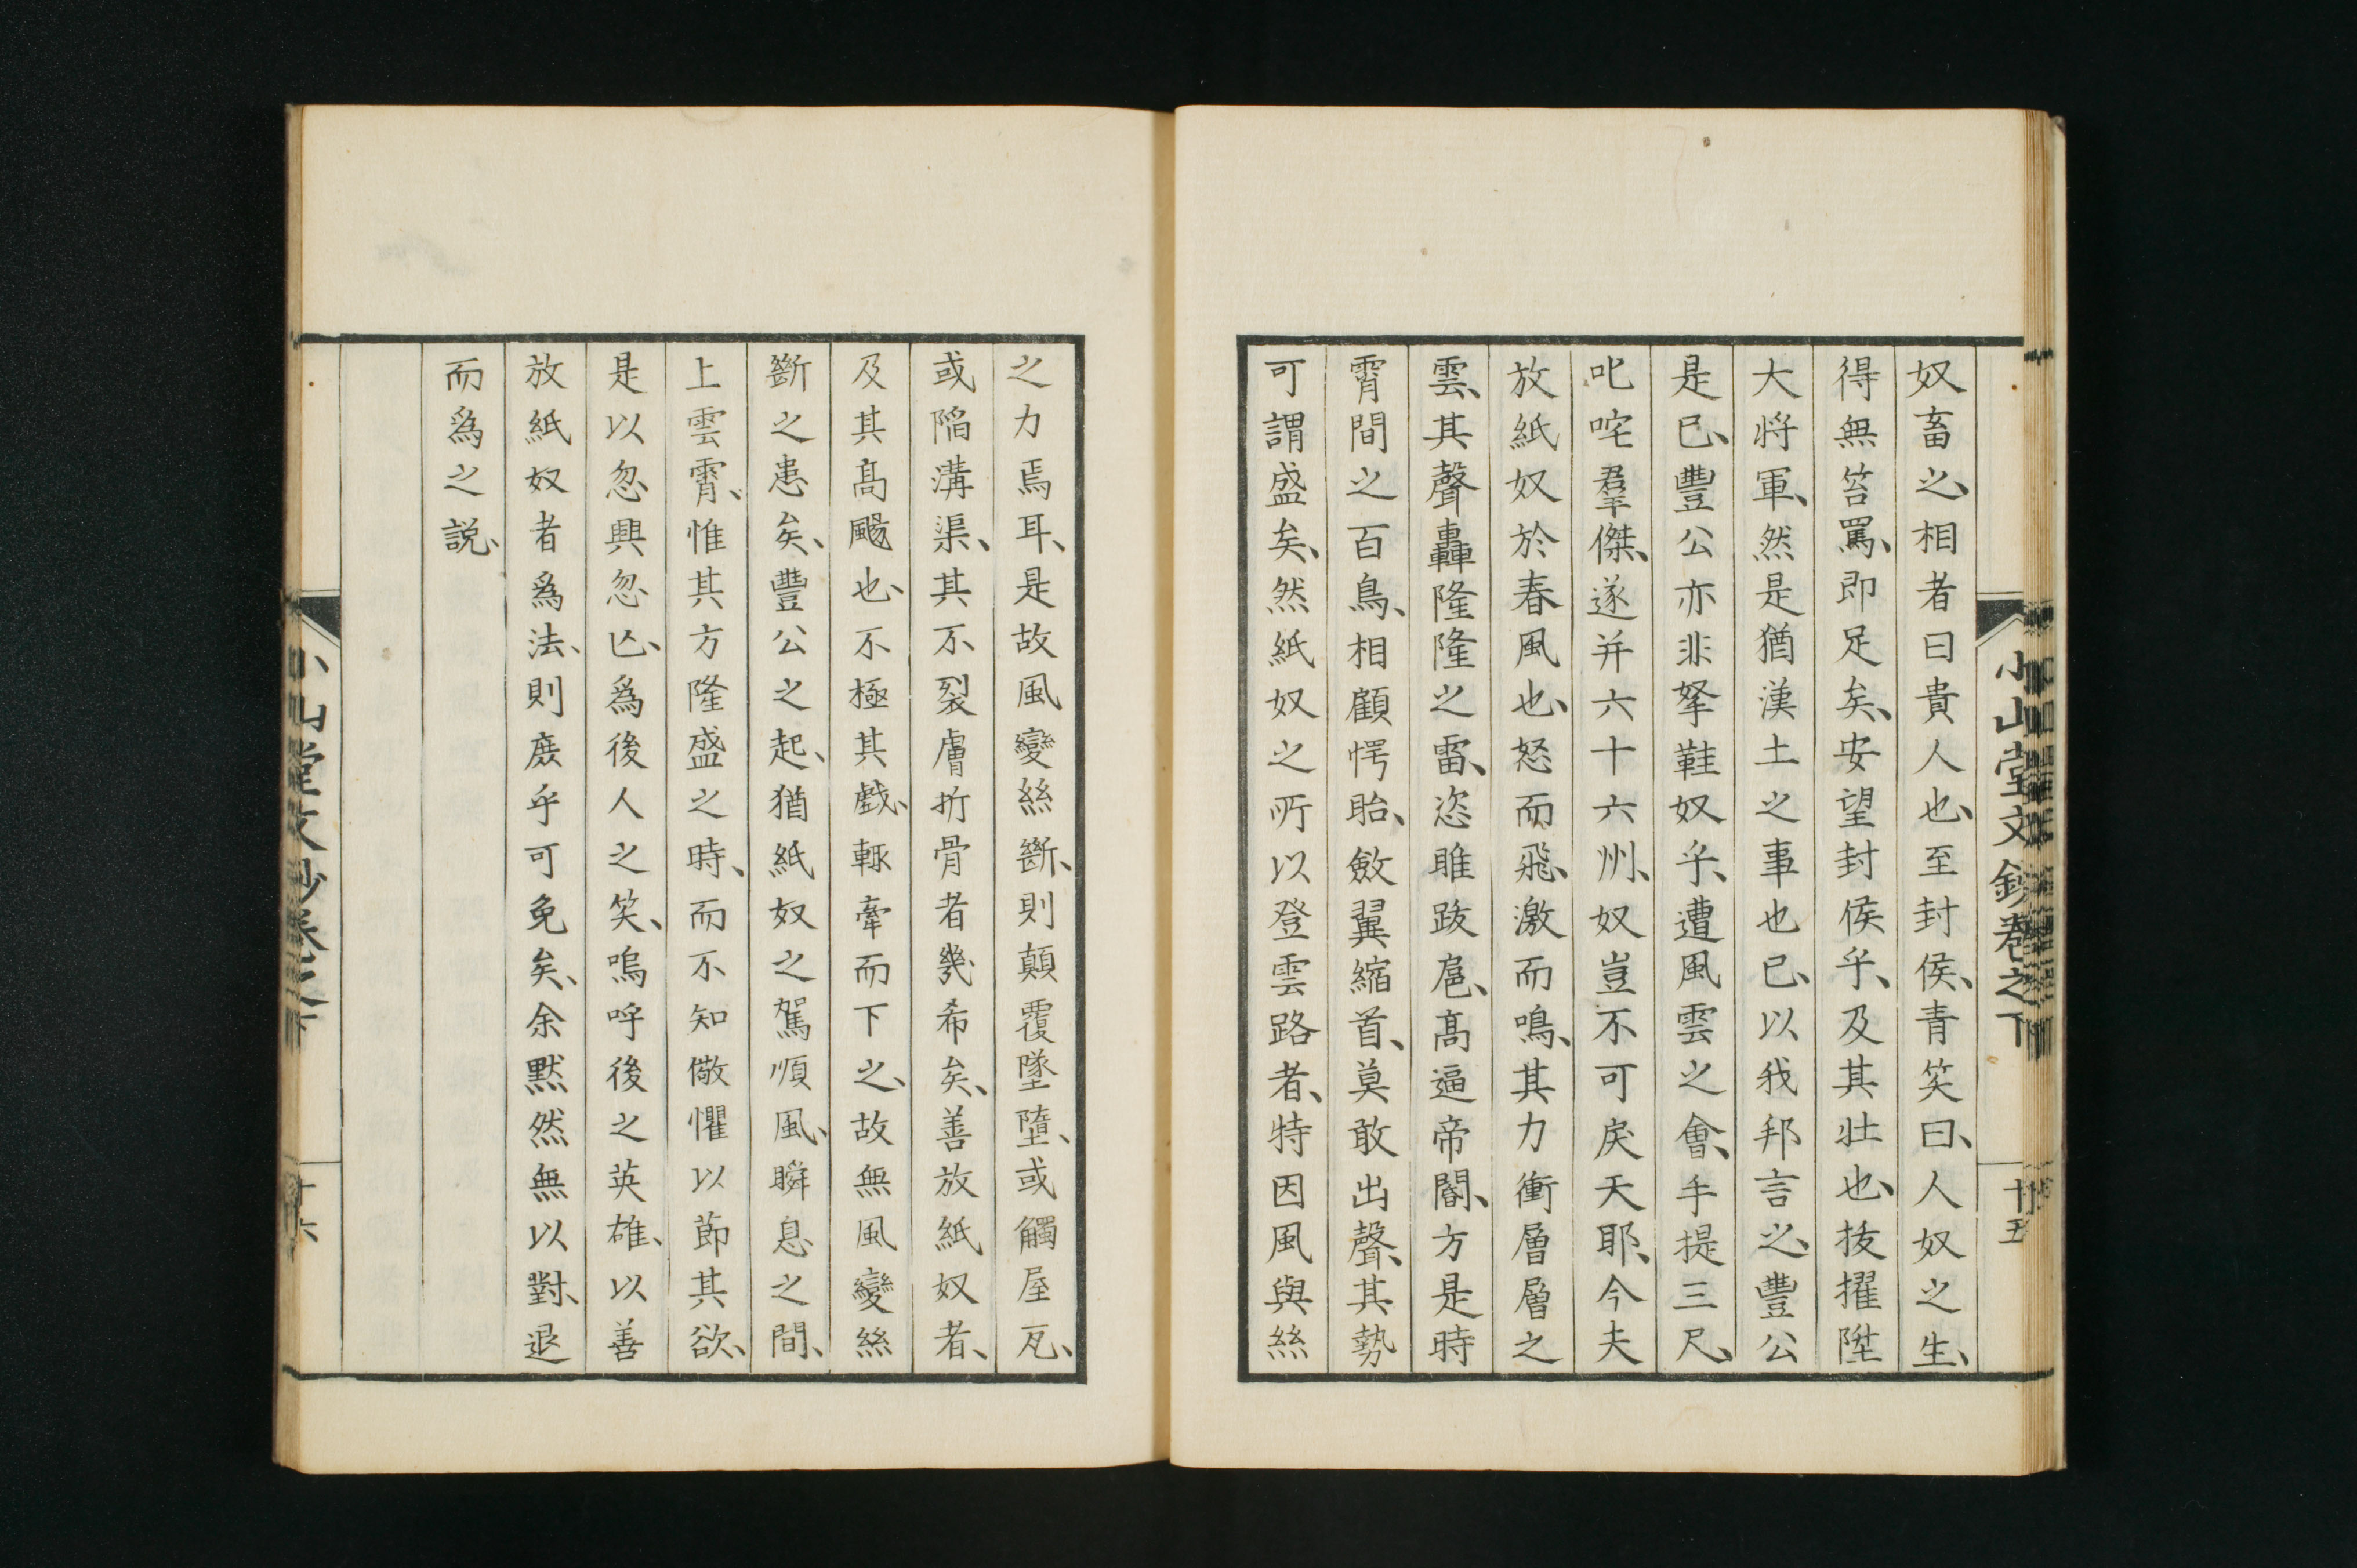 小山堂文鈔卷之下
十五
奴畜之、相者曰貴人也、至封侯、青笑曰、人奴之生、
得無笞罵、即足矣、安望封侯乎、及其壮也、抜擢陞
大将軍、然是猶漢土之事也已、以我邦言之、豐公
是已、豐公亦非拏鞋奴乎、遭風雲之會、手提三尺、
叱咤羣傑、遂并六十六州、奴豈不可戻天耶、今夫
放紙奴於春風也、怒而飛、激而鳴、其力衝層層之
雲、其聲轟隆隆之雷、恣睢跋扈、髙逼帝閽、方是時
霄間之百鳥、相顧愕眙、斂翼縮首、莫敢出聲、其勢
可謂盛矣、然紙奴之所以登雲路者、特因風與絲
之力焉耳、是故風變絲斷、則顛覆墜墮、或觸屋瓦、
或陷溝渠、其不裂膚折骨者幾希矣、善放紙奴者、
及其髙颺也、不極其戯、輒牽而下之、故無風變絲
斷之患矣、豐公之起、猶紙奴之駕順風、瞬息之間、
上雲霄、惟其方隆盛之時、而不知儆懼以節其欲、
是以忽興忽亾、爲後人之笑、嗚呼後之英雄、以善
放紙奴者爲法、則庶乎可免矣、余黙然無以對、退
而爲之説、
小山堂文鈔卷之下
十六